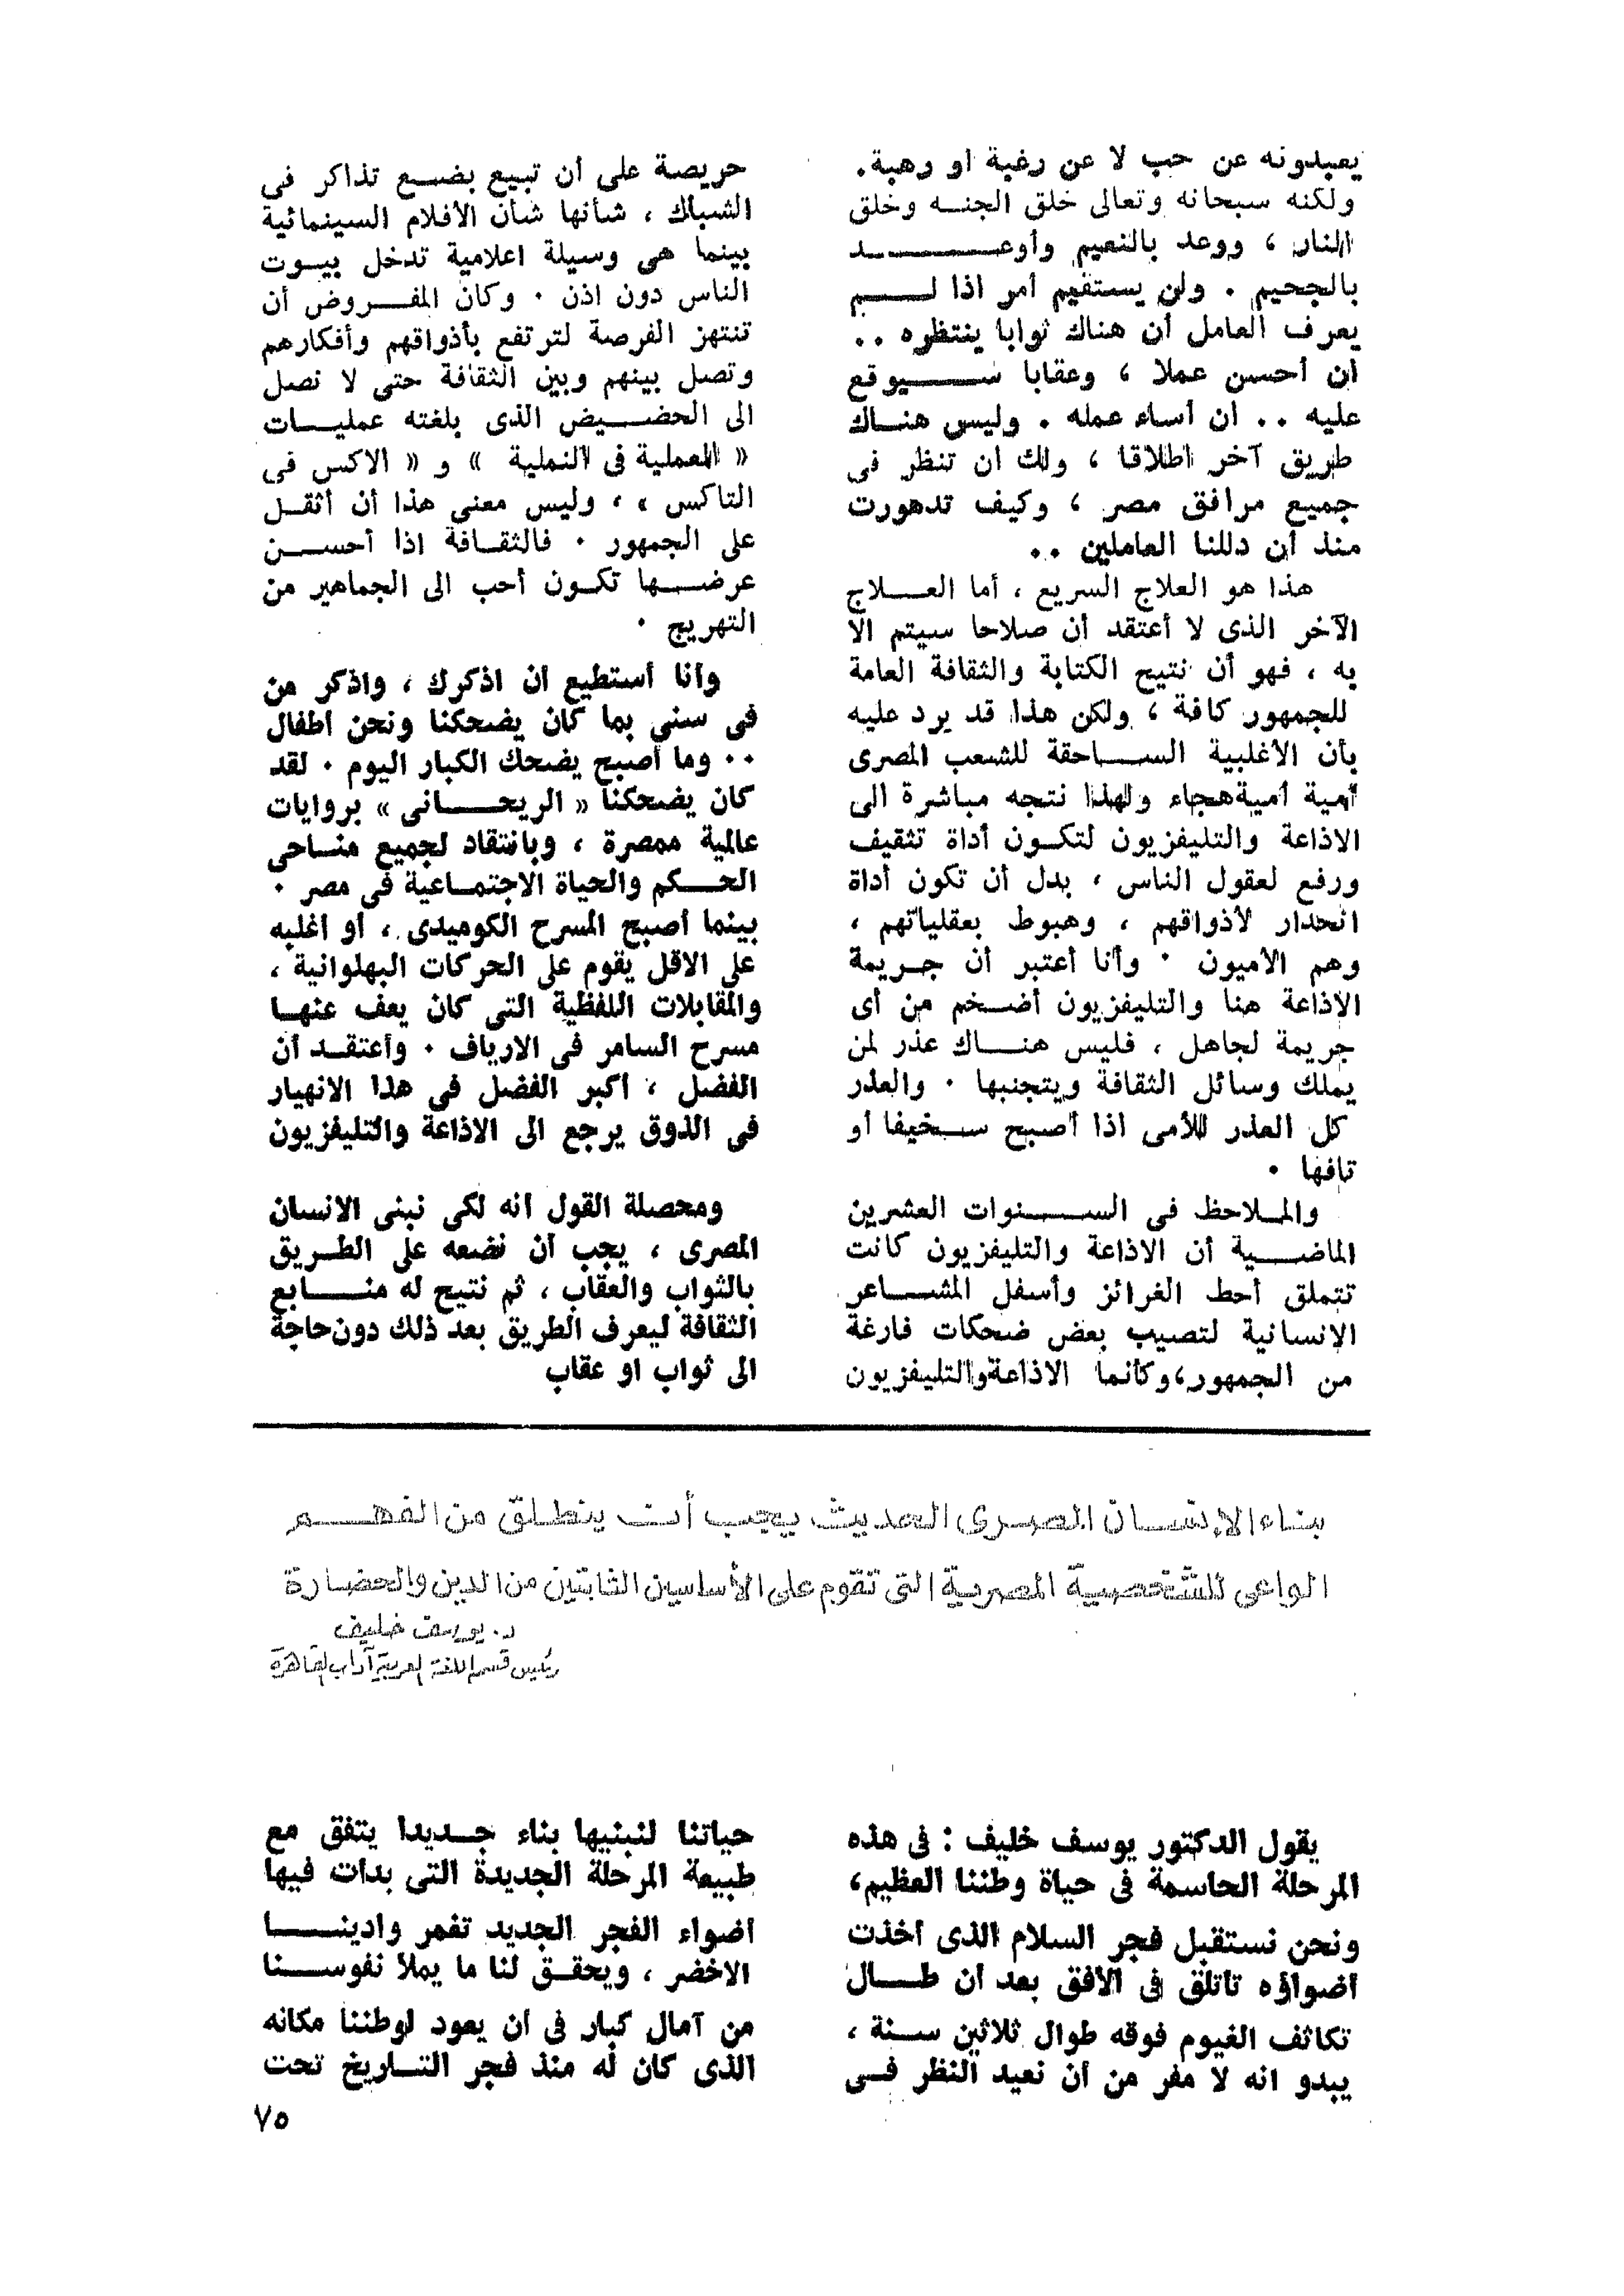 يعبدونه عن حب لا عن رغبة او رهبة.
ولكنه سبحانه وتعالى خلق الجنه وخلق
النار ، ووعد بالنعيم وأوعد
بالجحيم . ولن يستقيم أمر اذا لم
يعرف العامل أن هناك ثوابا ينتظره ..
ان أحسن عملا ، وعقابا سيوقع
عليه .. ان أساء عمله . وليس هناك
طريق آخر اطلاقا ، ولك ان تنظر فى
جميع مرافق مصر ، وكيف تدهورت
منذ أن دللنا العاملين ..
هذا هو العلاج السريع ، أما العلاج
الآخر الذى لا أعتقد أن صلاحا سيتم الا
به ، فهو أن نتيح الكتابة والثقافة العامة
للجمهور كافة ، ولكن هذا قد يرد عليه
بأن الأغلبية الساحقة للشعب المصرى
أمية أمية هجاء ولهذا نتجه مباشرة الى
الاذاعة والتليفزيون لتكون أداة تثقيف
ورفع لعقول الناس ، بدل أن تكون أداة
انحدار لأذواقهم ، وهبوط بعقلياتهم ،
وهم الاميون . وأنا أعتبر أن جريمة
الاذاعة هنا والتليفزيون أضخم من أى
جريمة لجاهل ، فليس هناك عذر لمن
يملك وسائل الثقافة ويتجنبها . والعذر
كل العذر للأمى اذا أصبح سخيفا أو
تافها .
والملاحظ فى السنوات العشرين
الماضية أن الاذاعة والتليفزيون كانت
تتملق أحط الغرائز وأسفل المشاعر
الانسانية لتصيب بعض ضحكات فارغة
من الجمهور،وكأنما الاذاعة والتليفزيون
حريصة على أن تبيع بضع تذاكر فى
الشباك ، شأنها شأن الأفلام السينمائية
بينما هى وسيلة اعلامية تدخل بيوت
الناس دون اذن . وكان المفروض أن
تنتهز الفرصة لترتفع بأذواقهم وأفكارهم
وتصل بينهم وبين الثقافة حتى لا نصل
الى الحضيض الذى بلغته عمليات
« العملية فى النملية » و « الاكس فى
التاكس » ، وليس معنى هذا أن أثقل
على الجمهور . فالثقافة اذا أحسن
عرضها تكون أحب الى الجماهير من
التهريج .
وأنا أستطيع أن اذكرك ، واذكر من
فى سنى بما كان يضحكنا ونحن اطفال
.. وما أصبح يضحك الكبار اليوم . لقد
كان يضحكنا « الريحانى » بروايات
عالمية ممصرة ، وبانتقاد لجميع مناحى
الحكم والحياة الاجتماعية فى مصر .
بينما أصبح المسرح الكوميدى ، أو أغلبه
على الاقل يقوم على الحركات البهلوانية ،
والمقابلات اللفظية التى كان يعف عنها
مسرح السامر فى الارياف . وأعتقد أن
الفضل ، أكبر الفضل فى هذا الانهيار
فى الذوق يرجع الى الاذاعة والتليفزيون
ومحصلة القول انه لكى نبنى الانسان
المصرى ، يجب أن نضعه على الطريق
بالثواب والعقاب ، ثم نتيح له منابع
الثقافة ليعرف الطريق بعد ذلك دون حاجة
الى ثواب او عقاب
بناء الإنسان المصرى الحديث يجب أن ينطلق من الفهم
الواعى للشخصية المصرية التى تقوم على الأساسين الثابتين من الدين والحضارة
د. يوسف خليف
رئيس قسم اللغة العربية آداب القاهرة
يقول الدكتور يوسف خليف : فى هذه
المرحلة الحاسمة فى حياة وطننا العظيم،
ونحن نستقبل فجر السلام الذى أخذت
أضواؤه تاتلق فى الأفق بعد أن طال
تكاثف الغيوم فوقه طوال ثلاثين سنة ،
يبدو انه لا مفر من أن نعيد النظر فى
حياتنا لنبنيها بناء جديدا يتفق مع
طبيعة المرحلة الجديدة التى بدات فيها
اضواء الفجر الجديد تغمر وادينا
الاخضر ، ويحقق لنا ما يملأ نفوسنا
من آمال كبار فى ان يعود لوطننا مكانه
الذى كان له منذ فجر التاريخ تحت
٧٥